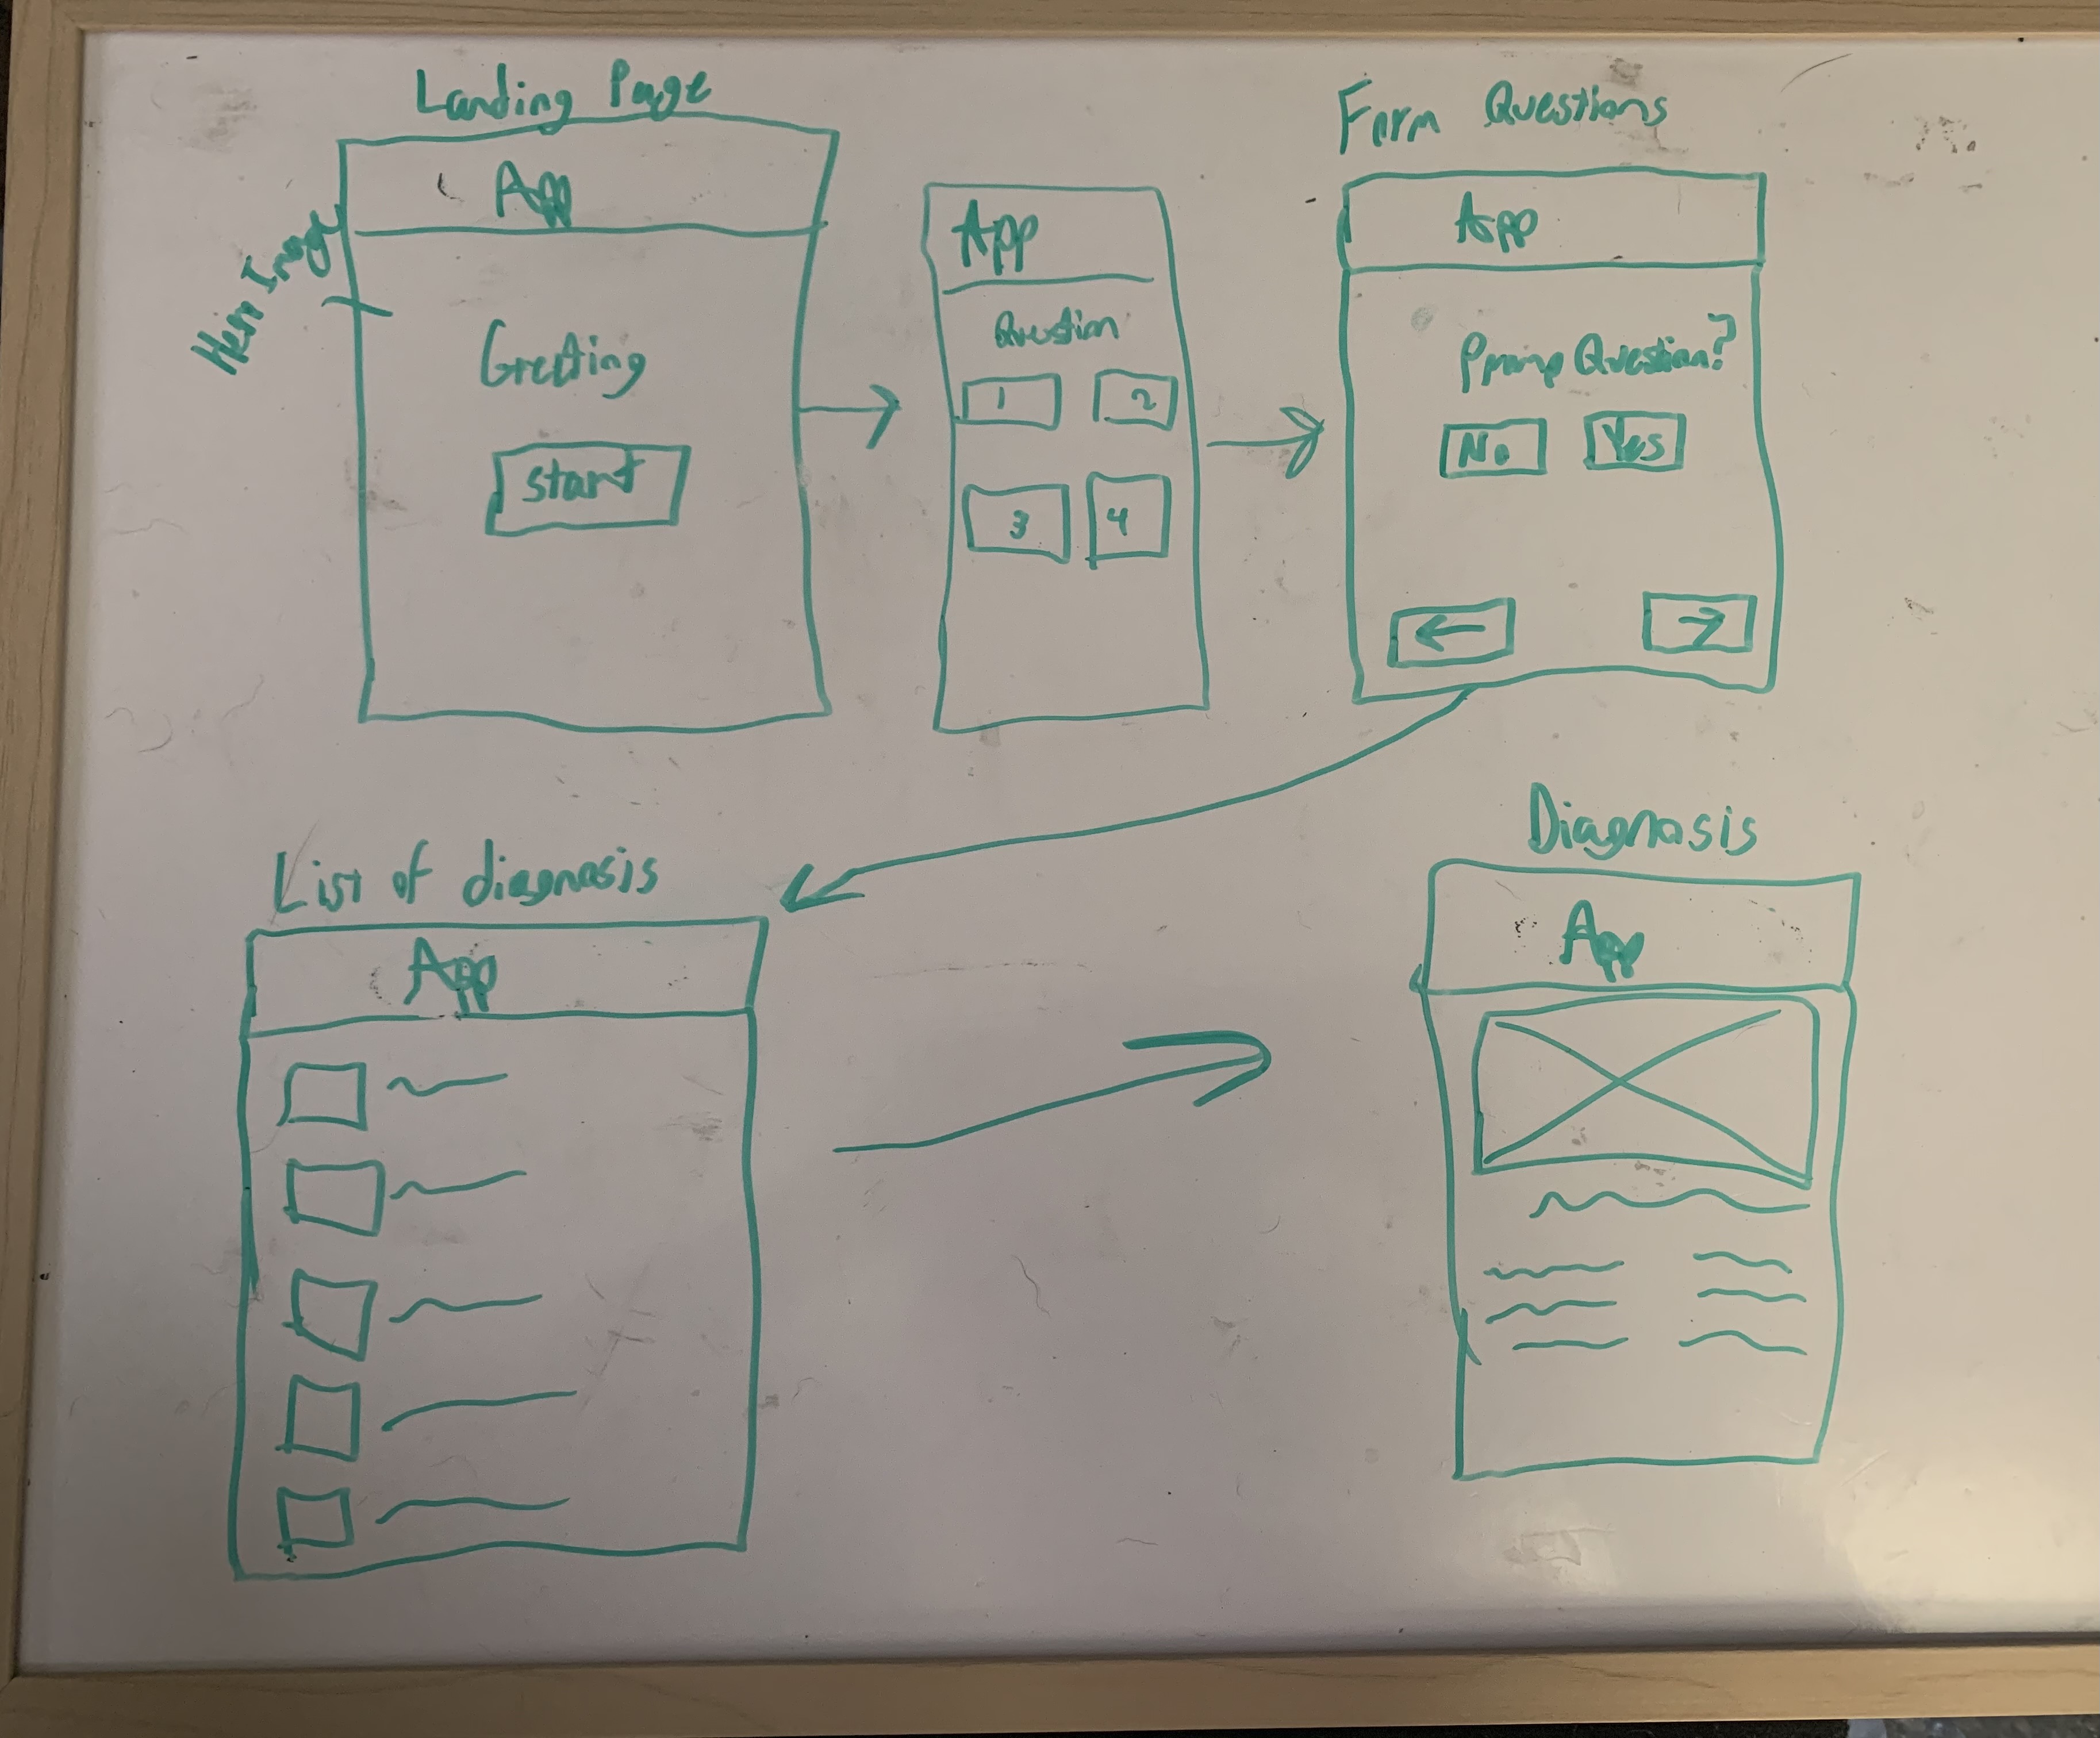 Landing Page
App
Hero Image
Greeting
start
App
Question
1 2
3 4
Form Questions
App
Question?
No Yes
List of diagnosis
App
Diagnosis
App